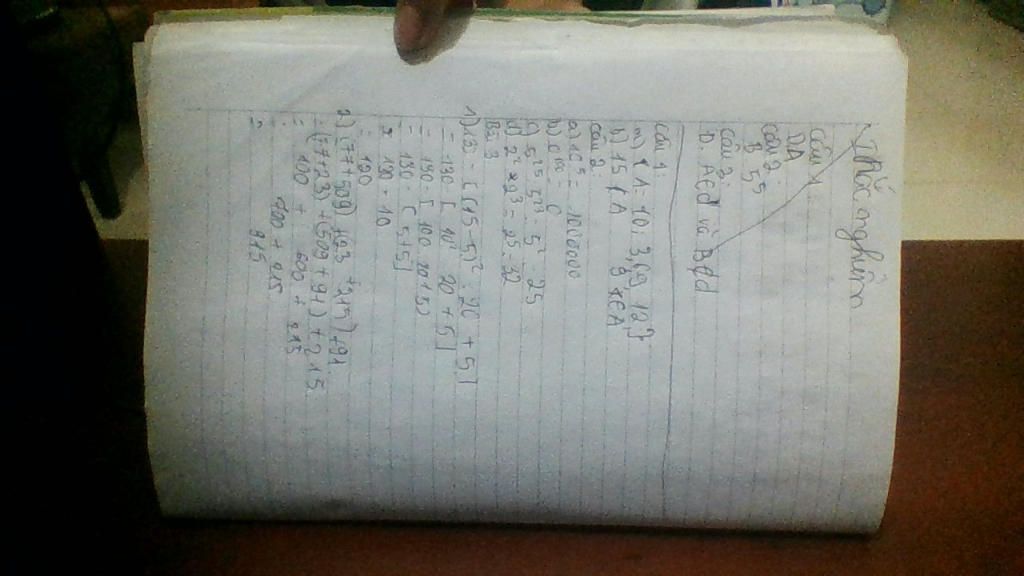 Trắc nghiệm
Câu 1
DA
Câu 2:
B 5⁵
Câu 3:
D. A∈d và B∉d
Câu 1:
a) A = {0; 3; 6; 9; 12;}
b) 15 ∉ A 9 ∈ A
Câu 2:
a) 10⁵ = 100000
b)
c) 5²⁵ 5²³ 5² = 25
d) 2² × 2³ = 2⁵ = 32
Bài 3
1) 130 - [(15 - 5)² : 20 + 5]
= 130 - [ 10² 20 + 5]
= 130 - [ 100 20 + 5]
= 130 - [5 + 5]
= 130 - 10
= 120
2) (77 + 509) + (23 + 215) + 91
= (77 + 23) + (509 + 91) + 215
= 100 + 600 + 215
= 700 + 215
= 915